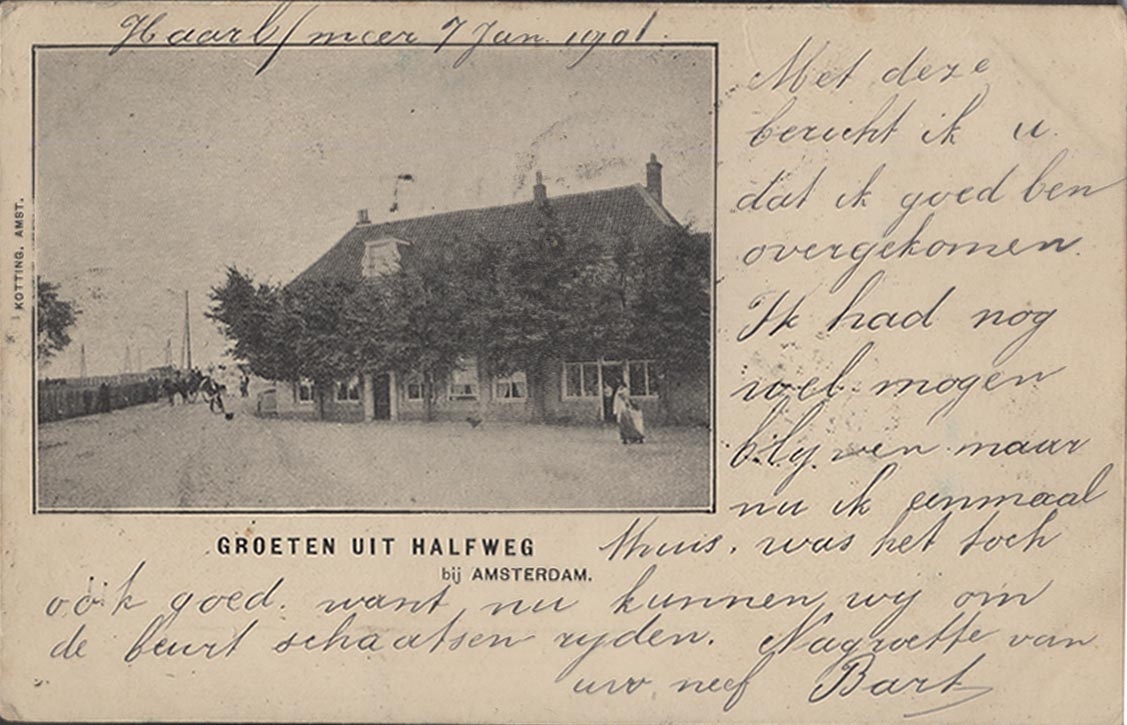 Haarl/meer 7 Jan. 1901.
Met deze
bericht ik u
dat ik goed ben
overgekomen.
Ik had nog
wel mogen
blijven maar
nu ik eenmaal
thuis. was het toch
ook goed. want nu kunnen wij om
de beurt schaatsen rijden. Nagroette van
uw neef Bart
KOTTING, AMST.
GROETEN UIT HALFWEG
bij AMSTERDAM.